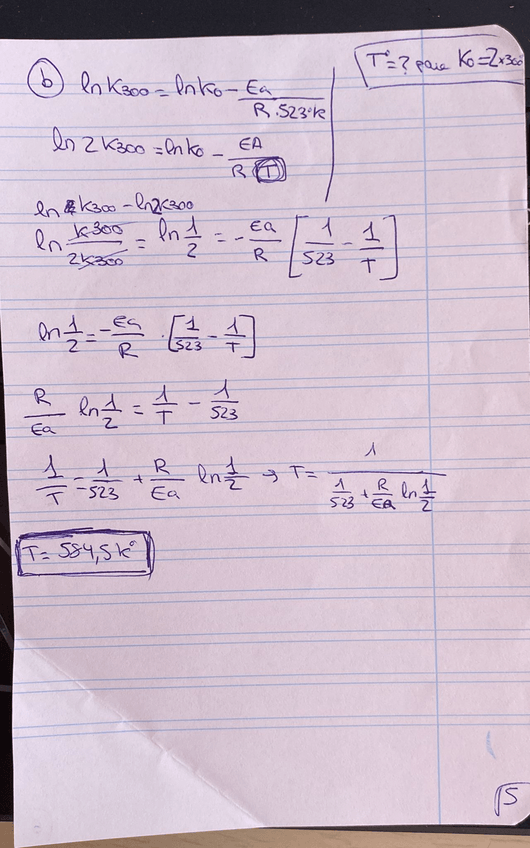 T°=? para K₀=2×300
b) ln K300 = ln k₀ - Ea / R.523°K
ln 2K300 = ln k₀ - EA / R T
ln K300 - ln2K300
ln K300 / 2K300 = ln 1/2 = - Ea/R [1/523 - 1/T]
ln 1/2 = -Ea/R . [1/523 - 1/T]
R/Ea ln 1/2 = 1/T - 1/523
1/T = 1/523 + R/Ea ln 1/2 → T = 1 / (1/523 + R/Ea ln 1/2)
T= 584,5 K°
5